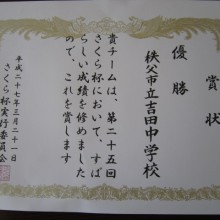 賞状
優勝
秩父市立吉田中学校
貴チームは、第二十五回
さくら杯において、すば
らしい成績を修めました
ので、これを賞します
平成二十七年三月二十一日
さくら杯実行委員会